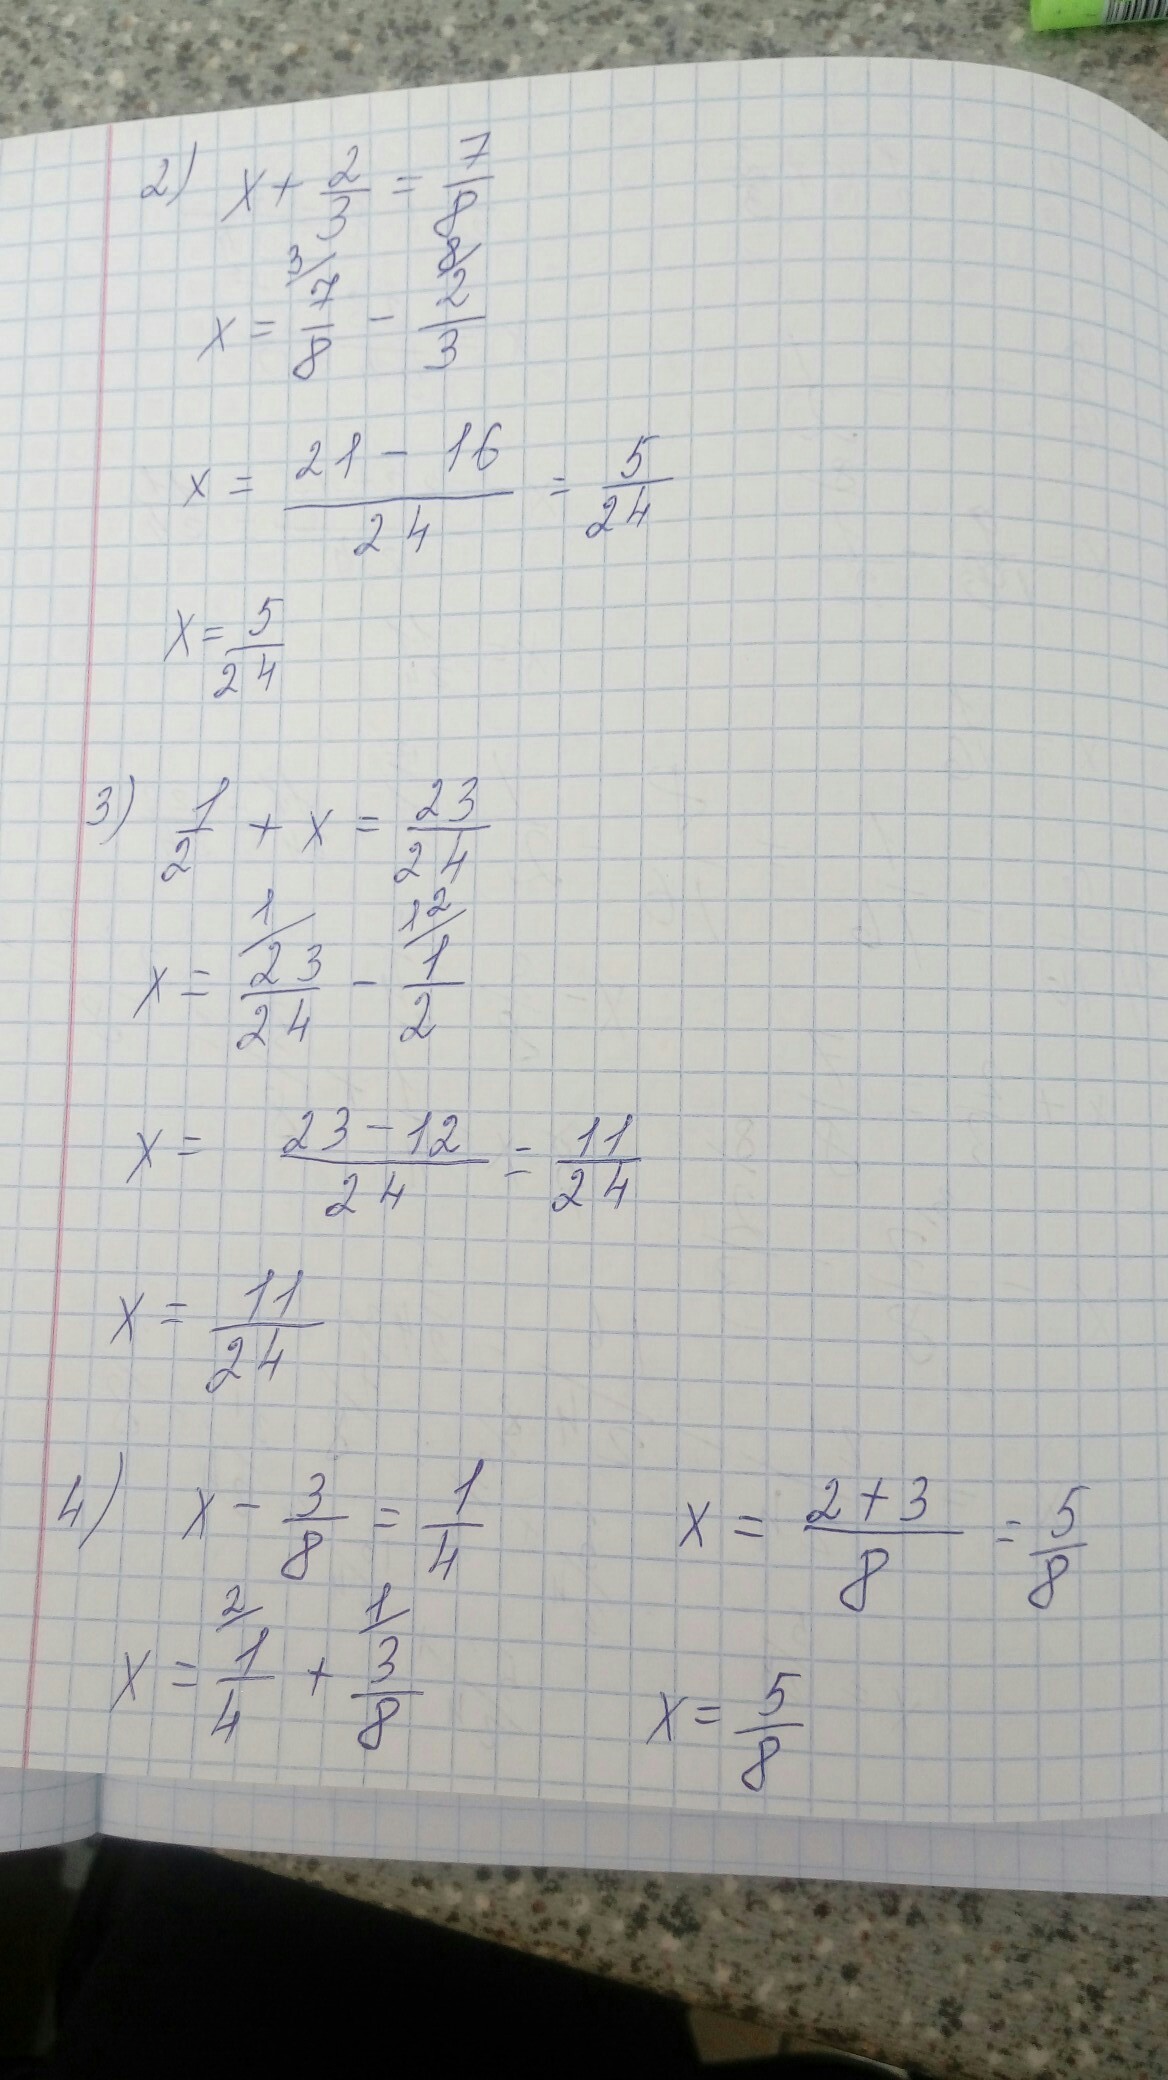 2) x + 2/3 = 7/8
x = 3/ 7/8 - 8/ 2/3
x = 21 - 16 / 24 = 5/24
x = 5/24
3) 1/2 + x = 23/24
x = 1/ 23/24 - 12/ 1/2
x = 23 - 12 / 24 = 11/24
x = 11/24
4) x - 3/8 = 1/4
x = 2/ 1/4 + 1/ 3/8
x = 2 + 3 / 8 = 5/8
x = 5/8